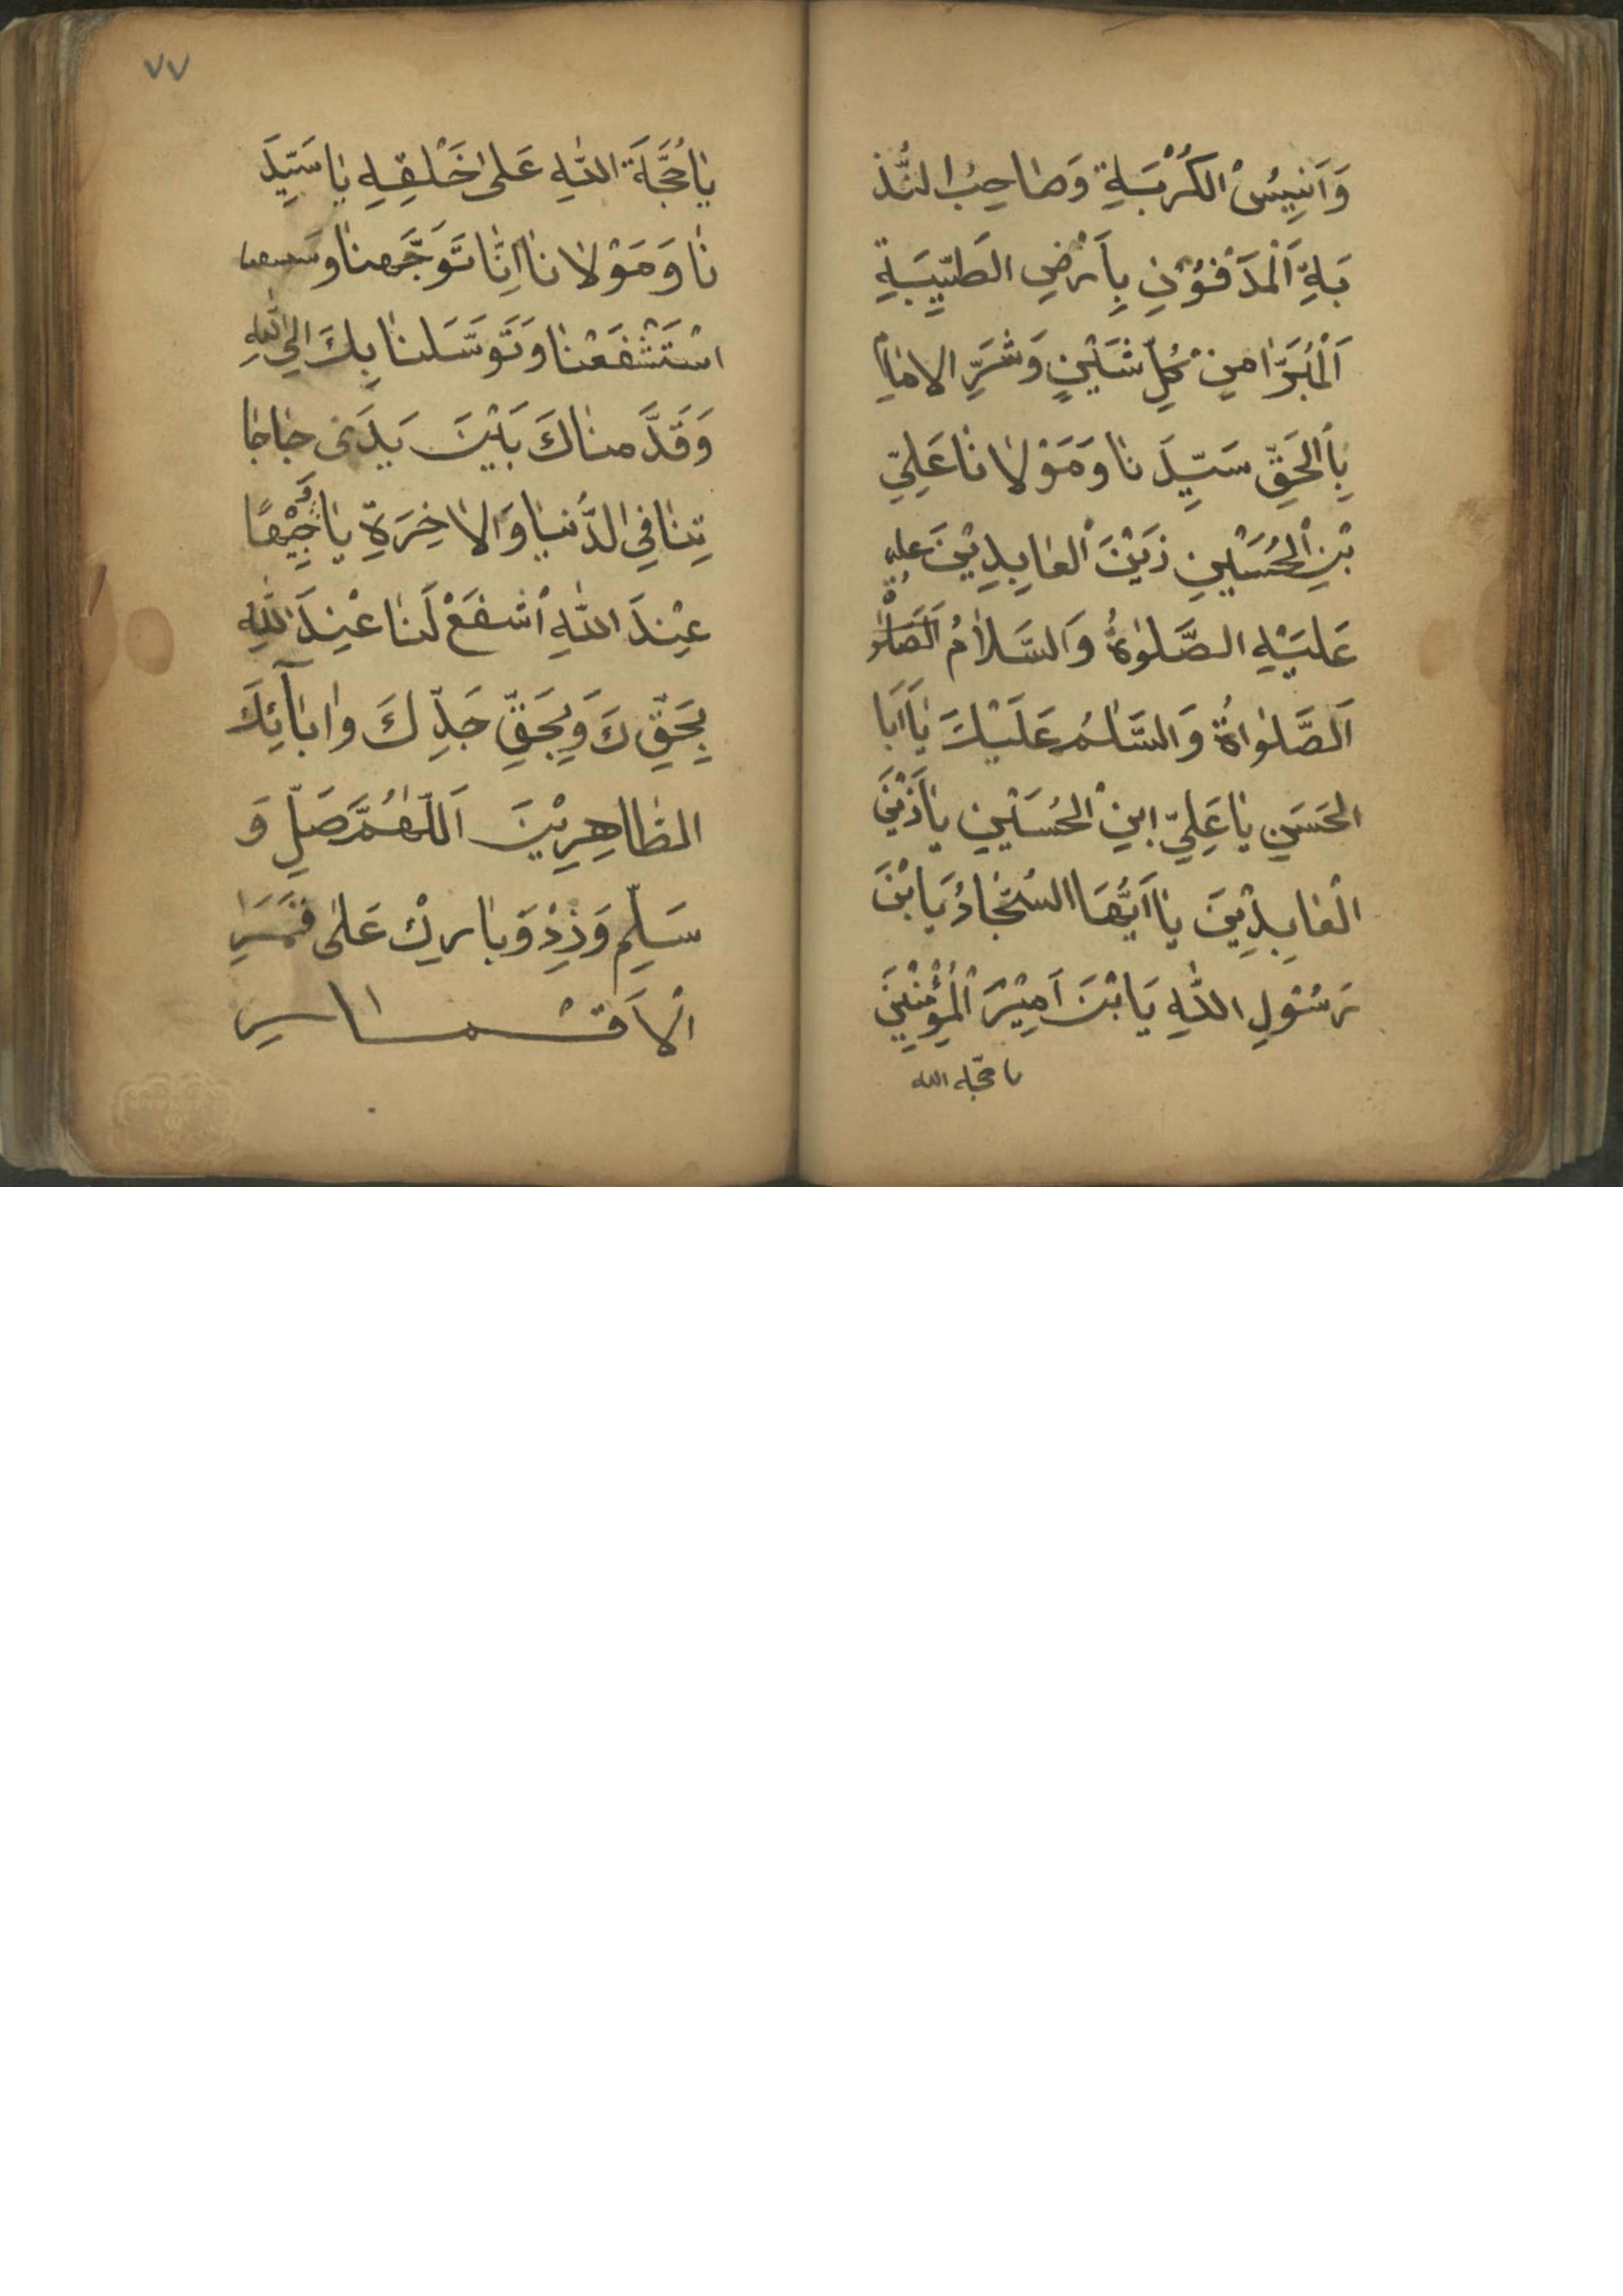 وَاَنِيسُ الكُرْبَةِ وَصٰاحِبُ النُّذ
بَةِ اَلْمَدْفُوْنِ بِاَرْضِ الطَيِّبَةِ
اَلْمُبَرَّا مِنْ كُلِّ شَيْنٍ وَشَرِّ الامٰامِ
بِاَلحَقِّ سَيِّدَ نٰا وَمَوْلٰا نٰا عَلِيِّ
بْنِ الْحُسَيْنِ زَيْنَ الْعٰابِدِيْنَ عليه
عَلَيْهِ الصَّلوٰةُ وَالسَّلاٰمُ اَلصَلٰو
اَلصَّلوٰاةُ وَالسَّلٰمُ عَلَيْكَ يٰا اَبَا
الحَسَنِ يٰا عَلِيّ ابنْ الْحُسَيْنِ يٰا زَيْنَ
الْعٰابِدِيْنَ يٰا اَيُّهَا السَّجَّادُ يَابْنَ
رَسُوْلِ اللّٰهِ يَابْنَ اَمِيْرَ الْمُؤْمِنِيْنَ
يا حجة الله
٧٧
يٰا حُجَّةَ اللّٰهِ عَلىٰ خَلْقِهِ يٰا سَيِّدَ
نٰا وَمَوْلٰا نٰا اِنّٰا تَوَجَّهنٰا وَ
اسْتَشْفَعْنٰا وَتَوَسَّلنٰا بِكَ اِلىَ اللّٰهِ
وَقَدَّمنٰاكَ بَيْنَ يَدَى حٰاجٰا
تِنٰا فِي الدُّنيٰا وَالاٰخِرَةِ يٰا وَجِيْهًا
عِنْدَ اللّٰهِ اْشفَعْ لَنٰا عْنِدَ اللّٰهِ
بِحَقِّ كَ وَبِحَقِّ جَدِّ كَ وابٰآئِكَ
الطٰاهِرِيْنَ اَللّٰهُمَّ صَلِّ وَ
سَلِّم وَزِدْ وَبٰارِكْ عَلىٰ قَمَرِ
الْاَقْمٰارِ